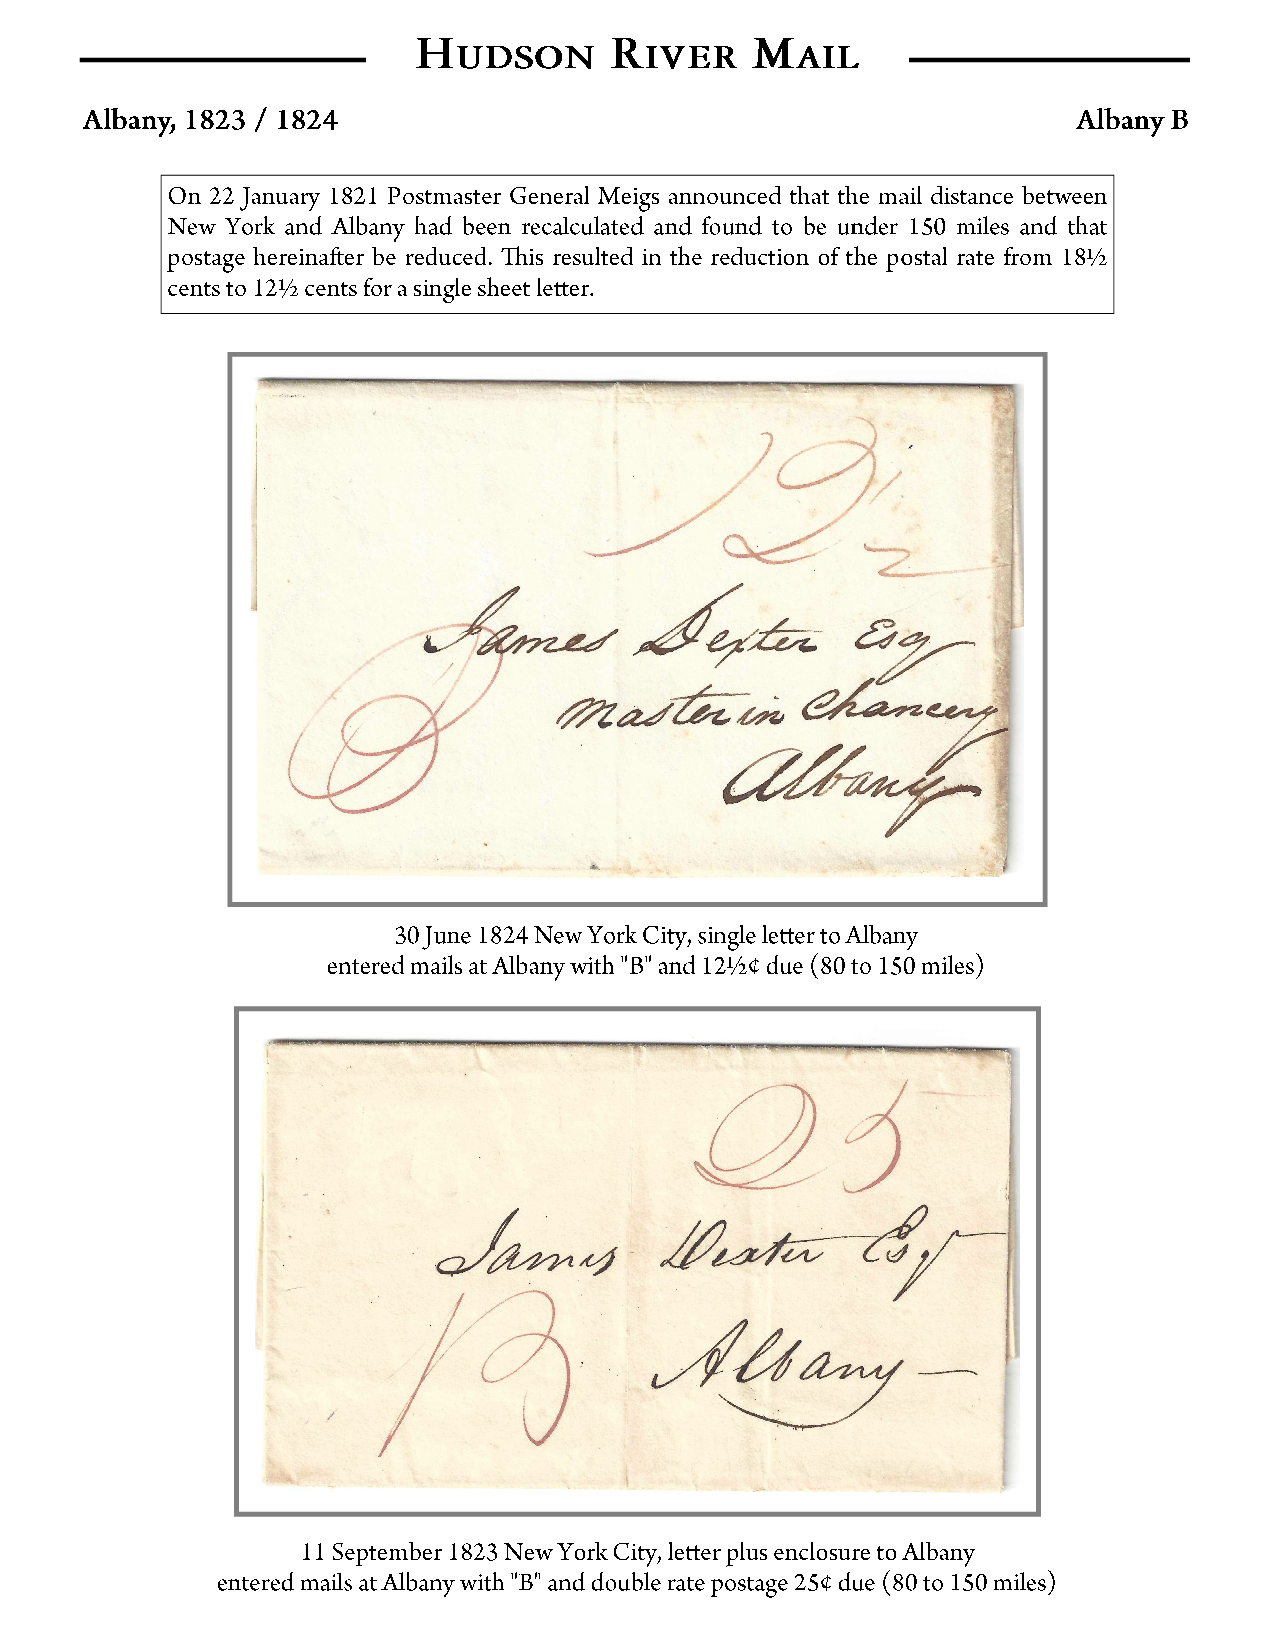 Hudson River Mail
Albany, 1823 / 1824
Albany B
On 22 January 1821 Postmaster General Meigs announced that the mail distance between
New York and Albany had been recalculated and found to be under 150 miles and that
postage hereinafter be reduced. This resulted in the reduction of the postal rate from 18½
cents to 12½ cents for a single sheet letter.
12½
James Dexter Esq
Master in Chancery
B
Albany
30 June 1824 New York City, single letter to Albany
entered mails at Albany with "B" and 12½¢ due (80 to 150 miles)
25
James Dexter Esqr
B
Albany —
11 September 1823 New York City, letter plus enclosure to Albany
entered mails at Albany with "B" and double rate postage 25¢ due (80 to 150 miles)